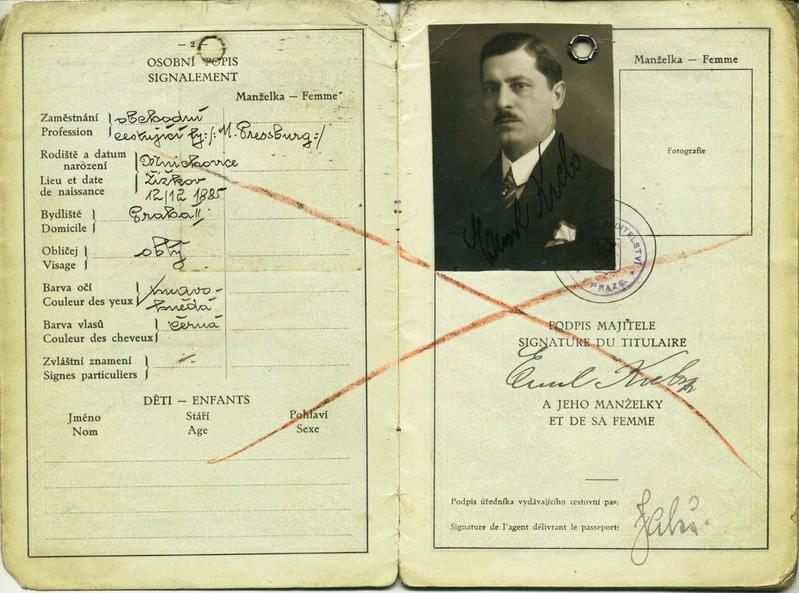 — 2 —
OSOBNÍ POPIS
SIGNALEMENT
Manželka — Femme
Zaměstnání
Profession
obchodní
cestující fy:/: M. Pressburg:/
Rodiště a datum
narození
Lieu et date
de naissance
Mnichovice
Žižkov
12/12 1885
Bydliště
Domicile
Praha II
Obličej
Visage
oblý
Barva očí
Couleur des yeux
tmavo-
hnědá
Barva vlasů
Couleur des cheveux
černá
Zvláštní znamení
Signes particuliers
DĚTI — ENFANTS
Jméno Stáří Pohlaví
Nom Age Sexe
Manželka — Femme
Fotografie
Emil Krebs
ŘEDITELSTVÍ
PRAZE
PODPIS MAJITELE
SIGNATURE DU TITULAIRE
Emil Krebs
A JEHO MANŽELKY
ET DE SA FEMME
Podpis úředníka vydávajícího cestovní pas:
Signature de l'agent délivrant le passeport: